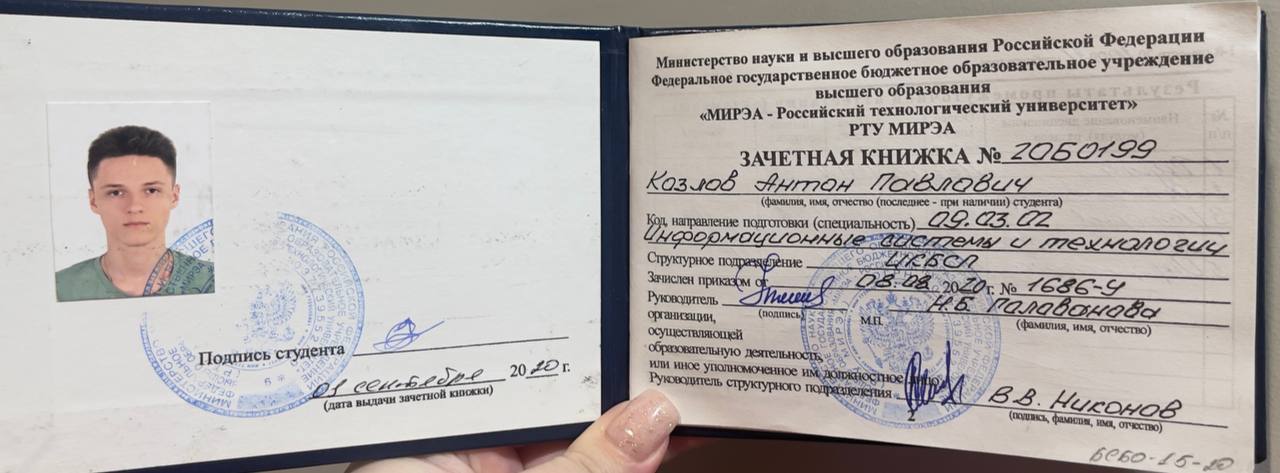 Подпись студента
01 сентября 2020 г.
(дата выдачи зачетной книжки)
Министерство науки и высшего образования Российской Федерации
Федеральное государственное бюджетное образовательное учреждение
высшего образования
«МИРЭА - Российский технологический университет»
РТУ МИРЭА
ЗАЧЕТНАЯ КНИЖКА № 20Б0199
Козлов Антон Павлович
(фамилия, имя, отчество (последнее - при наличии) студента)
Код, направление подготовки (специальность) 09.03.02
Информационные системы и технологии
Структурное подразделение ИКБСП
Зачислен приказом от 08.08. 2020 г. № 1686-У
Руководитель Н.Б. Палавонова
(подпись) (фамилия, имя, отчество)
организации, М.П.
осуществляющей
образовательную деятельность,
или иное уполномоченное им должностное лицо
Руководитель структурного подразделения В.В. Никонов
(подпись, фамилия, имя, отчество)
2